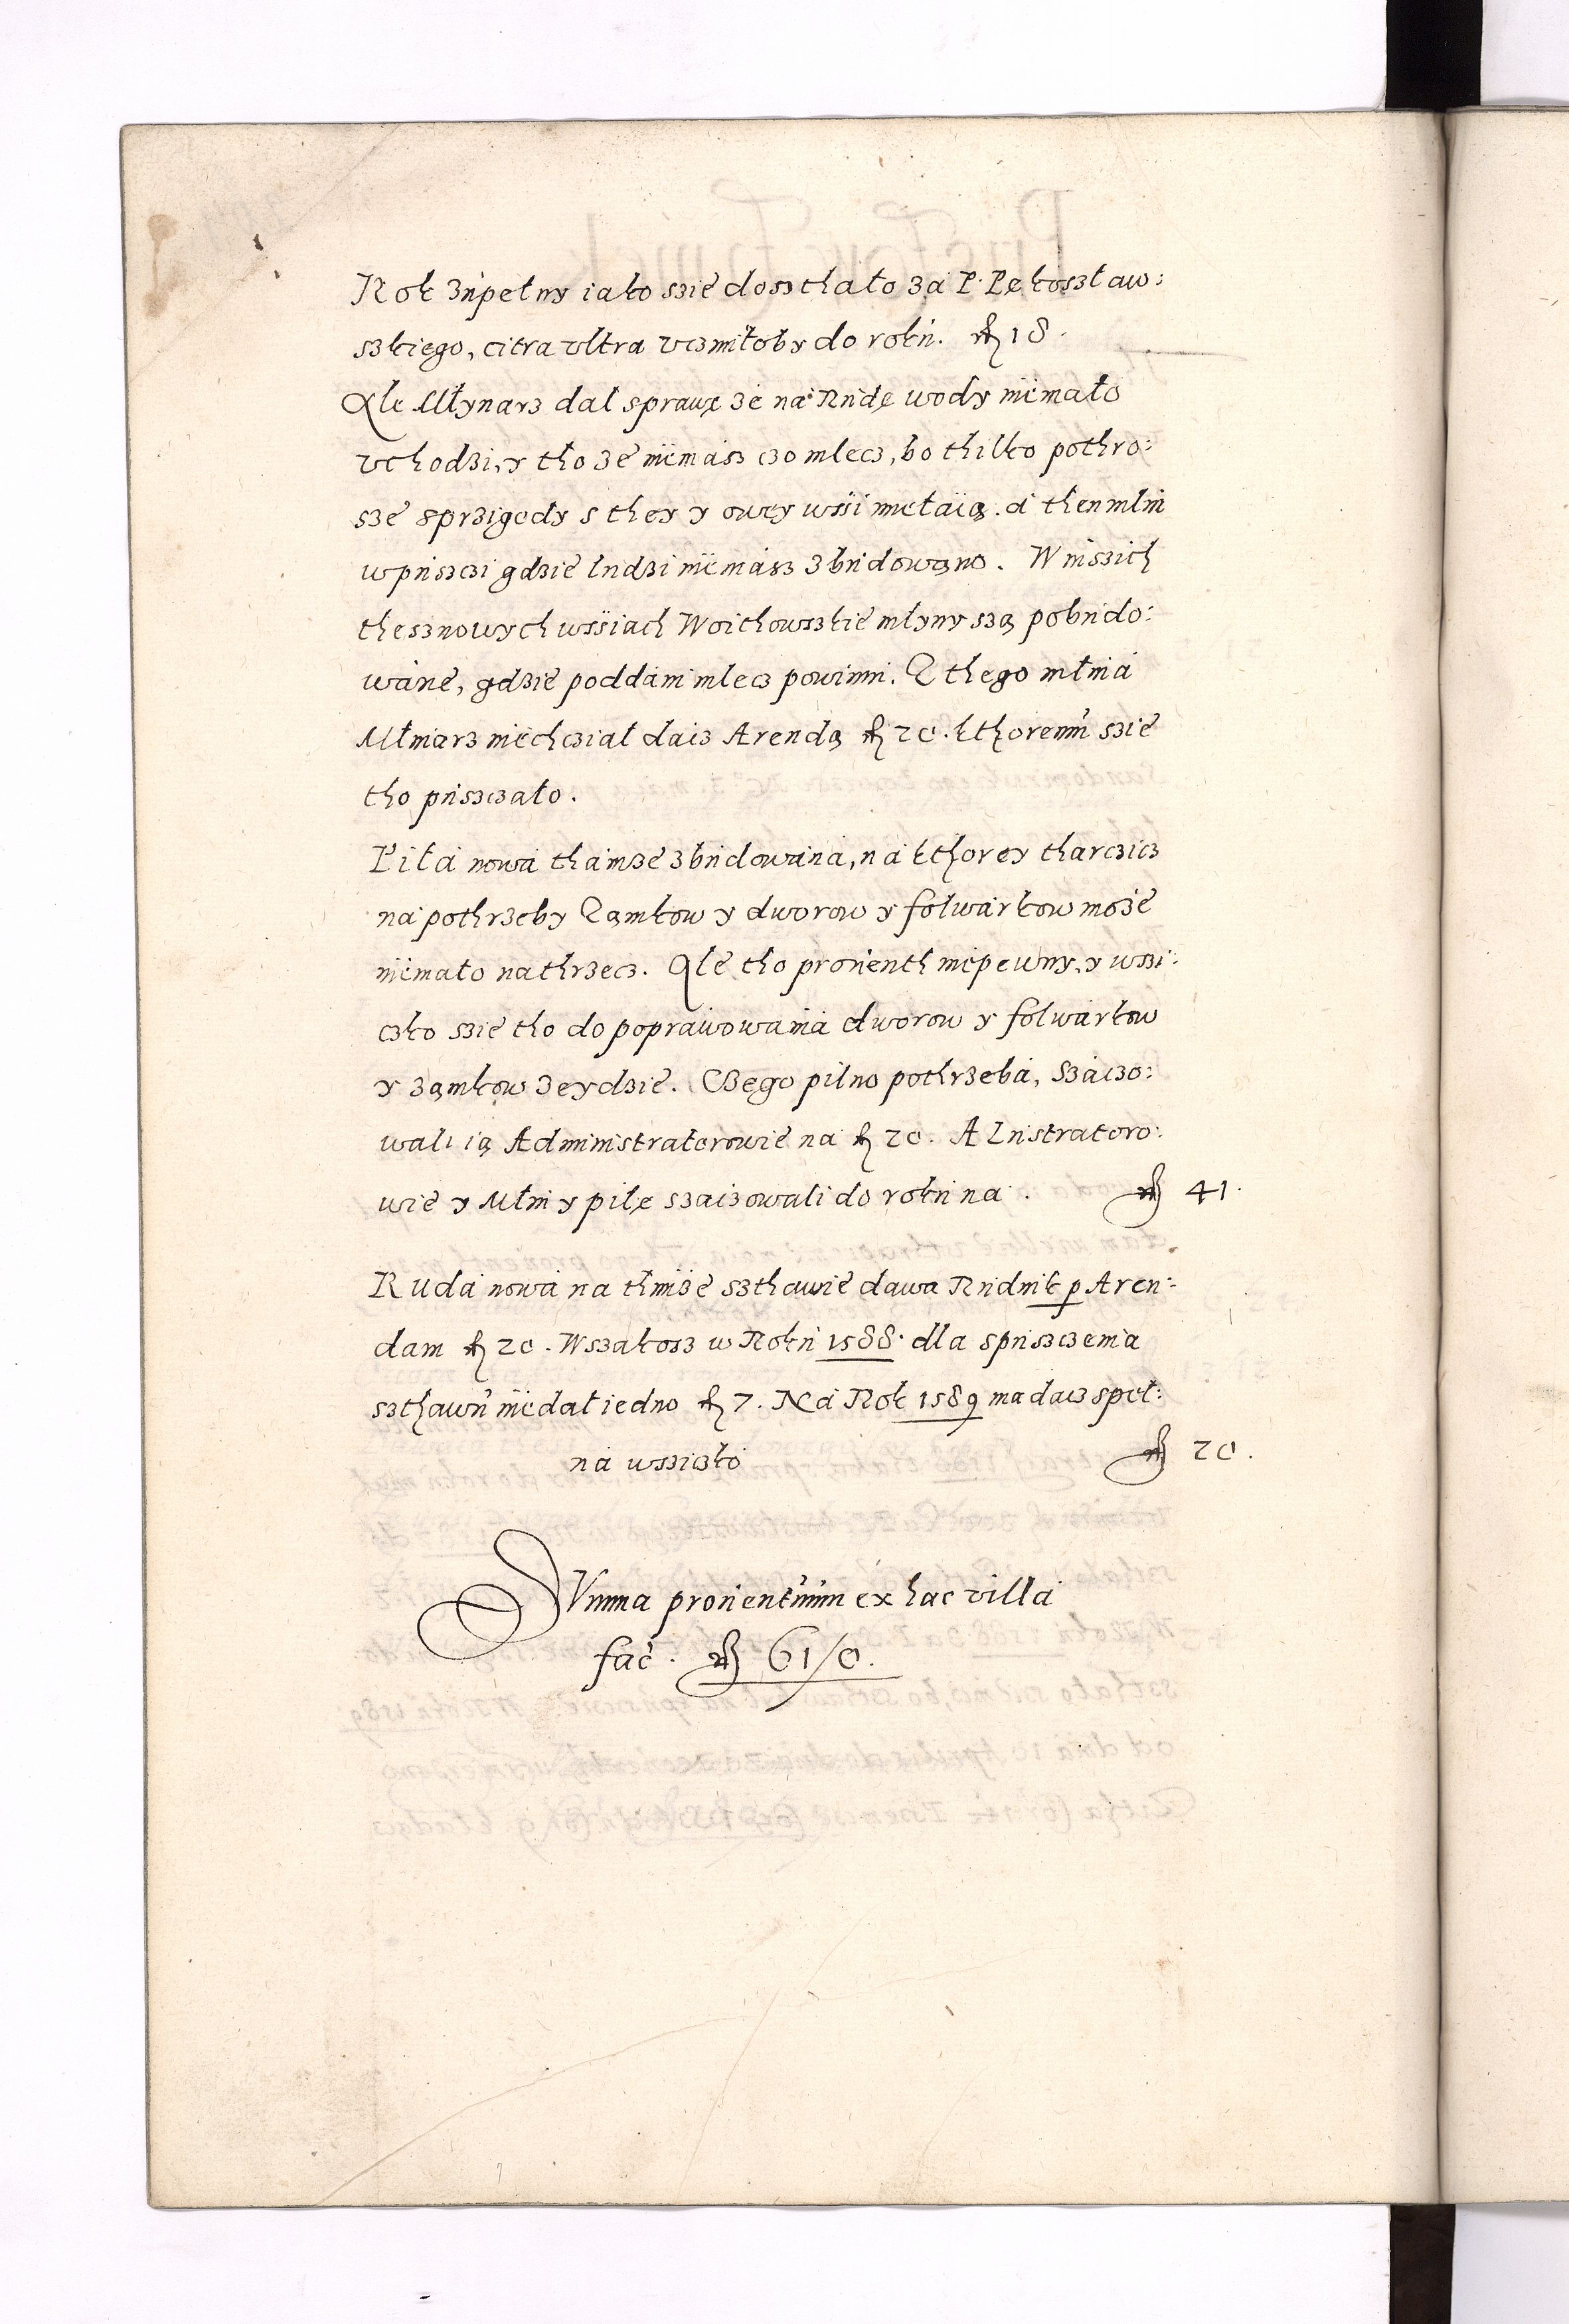 Rok zupełny iako szie dosthało za P. Pękoszław:
szkiego, citra vltra vczmiłoby do roku. fl 18.
Ale Młynarz dal sprawę ze na Rudę wody niemało
vchodzi, y tho ze niemász czo mlecz, bo thilko pothro:
sze sprzigody s they y owey wśi mieláią. á then młin
w pusczi gdzie ludzi niemász zbudowąno. W inszich
theznowych wśiach Woithowszkie młyny szą pobudo:
wáne, gdzie poddáni mlecz powinni. Z thego młiná
Młinarz niechcział daicz Arendą fl 20. kthoremu szie
tho pusczało.
Piłá nowá thámze zbudowáná, ná kthorey tharczicz
ná pothrzeby Zamkow y dworow y folwárkow może
niemało nathrzecz. Ale tho prouenth niepewny, y wszi:
czko szie tho do popráwowániá dworow y folwárkow
y zamkow zeydzie. Czego pilno pothrzebá, Szaczo:
wali ią Administratorowie ná fl 20. A Lustratoro:
wie y Młin y piłę szaczowali do roku ná. fl 41.
Rudá nowá na thimże szthawie dawa Rudnik p Aren:
dam fl 20. Wszakosz w Roku 1588. dla spusczenia
szthawu niedał iedno fl 7. Ná Rok 1589 ma dacz speł:
ná wszicko fl 20.
Summa prouentuum ex hac villa
fac. fl 61/0.